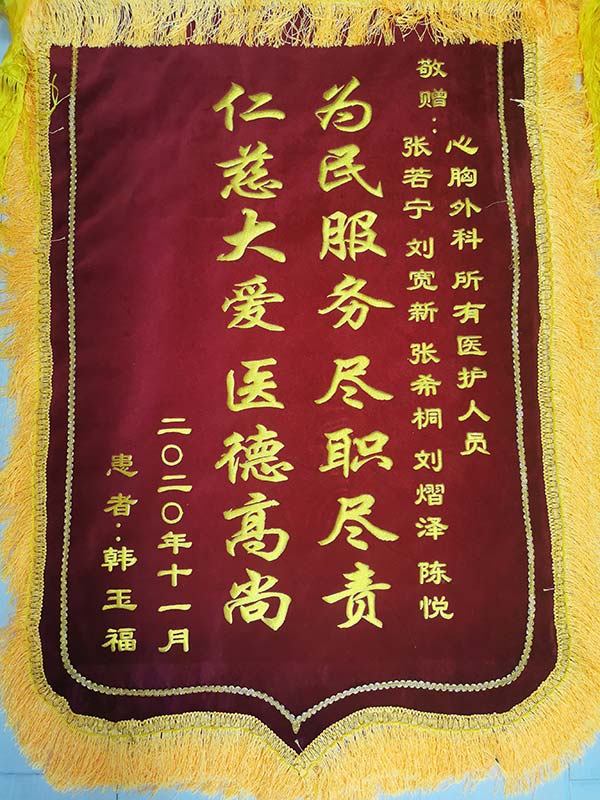 敬赠：
心胸外科 所有医护人员
张若宁 刘宽新 张希桐 刘熠泽 陈悦
为民服务 尽职尽责
仁慈大爱 医德高尚
二〇二〇年十一月
患者：韩玉福